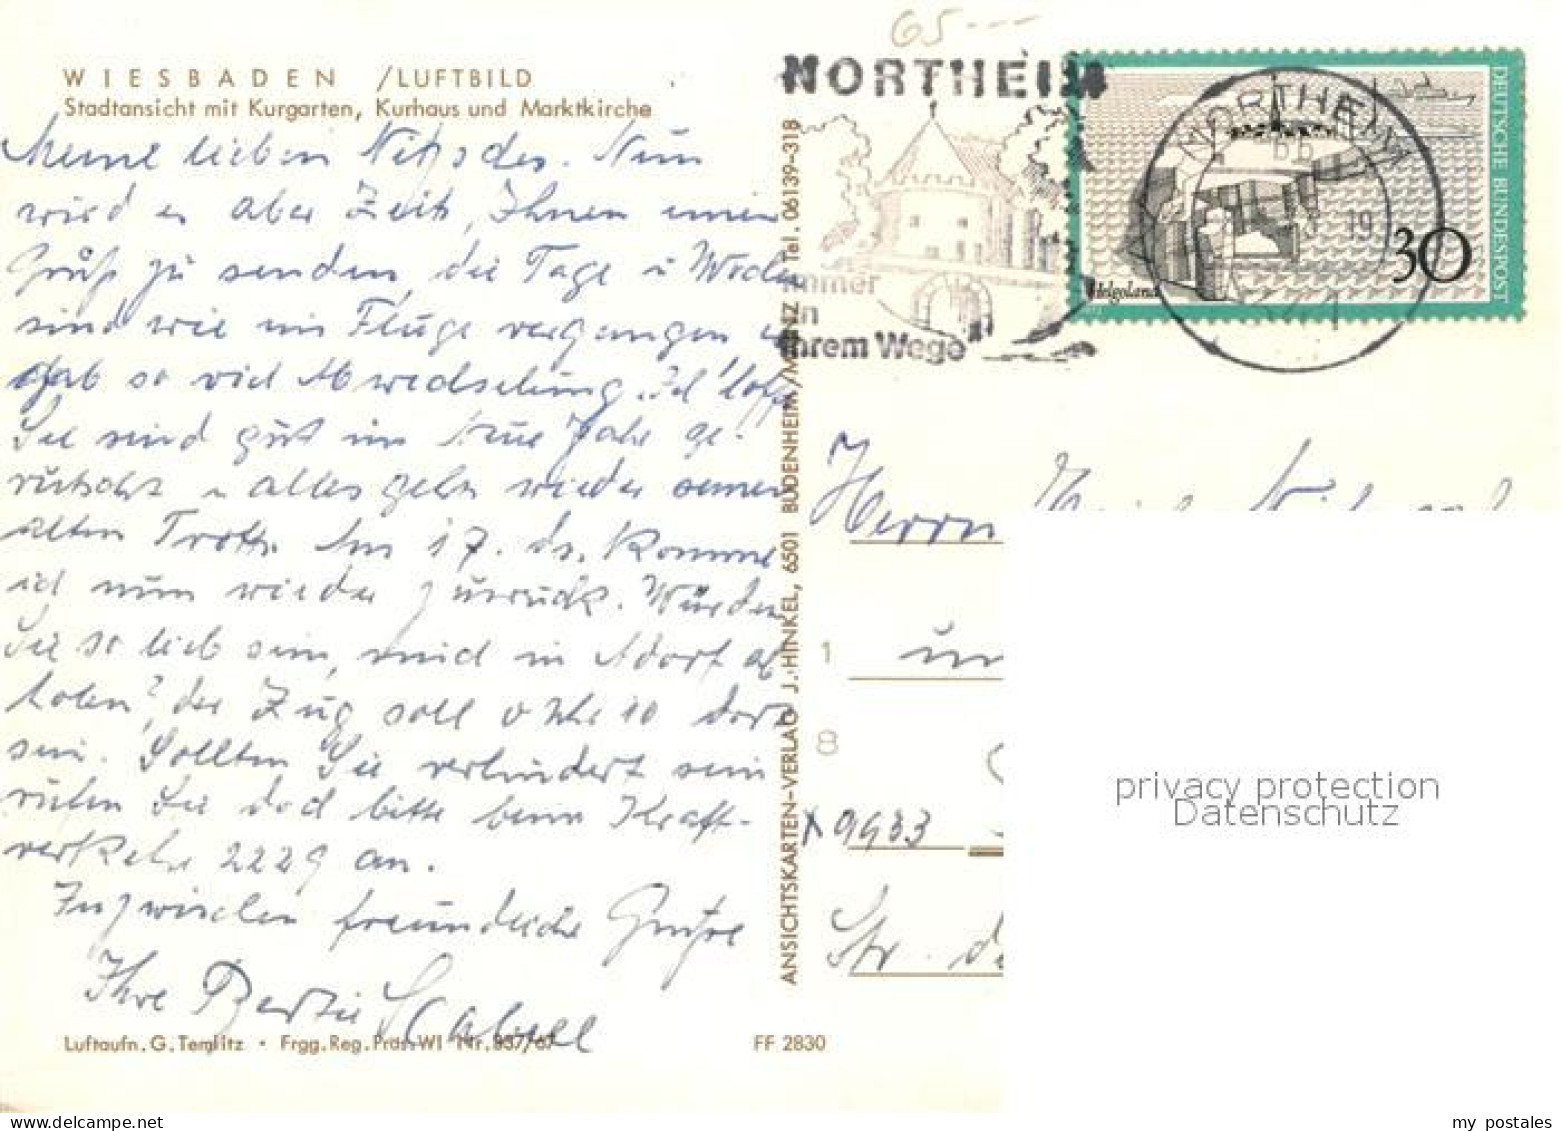 65.---
WIESBADEN /LUFTBILD
Stadtansicht mit Kurgarten, Kurhaus und Marktkirche
Meine lieben. Nun
wird es aber Zeit, Ihnen einen
Gruß zu senden, die Tage u Wochen
sind wie im Fluge vergangen es
gab so viel Abwechselung. Ich hoffe
Sie sind gut ins neue Jahr ge-
rutscht u alles geht wieder seinen
alten Trott. Am 17. ds. komme
ich nun wieder zurück. Würden
Sie so lieb sein, mich in Adorf ab
holen? der Zug soll 0 Uhr 10 dort
sein. Sollten Sie verhindert sein
rufen Sie doch bitte beim Kraft-
verkehr 2229 an.
Inzwischen freundliche Grüße
Ihre
Luftaufn. G. Temlitz • Frgg. Reg. Präs. WI Nr. 837/67
FF 2830
ANSICHTSKARTEN-VERLAG J. HINKEL, 6501 BUDENHEIM/MAINZ Tel. 06139-318
NORTHEIM
immer
in
Ihrem Wege
NORTHEIM
19
DEUTSCHE BUNDESPOST
30
Helgoland
Herrn
1
8
X 9933
Str. d
privacy protection
Datenschutz
my postales